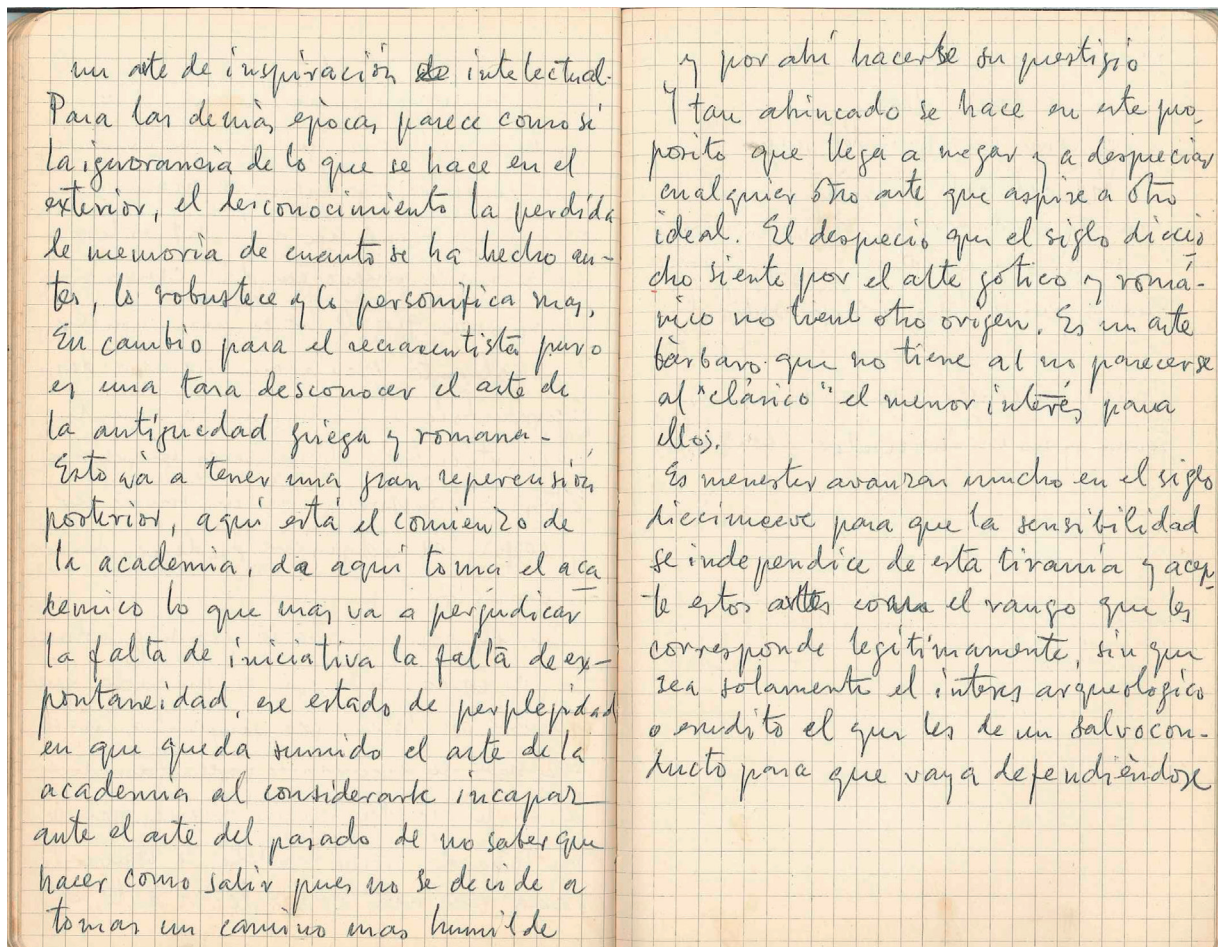 un arte de inspiración intelectual.
Para las demás épocas parece como si
la ignorancia de lo que se hace en el
exterior, el desconocimiento la perdida
de memoria de cuanto se ha hecho an-
tes, lo robustece y lo personifica mas,
En cambio para el renacentista puro
es una tara desconocer el arte de
la antiguedad griega y romana-
Esto và a tener una gran repercusión
posterior, aquí está el comienzo de
la academia, de aquí toma el aca
demico lo que mas va a perjudicar
la falta de iniciativa la falta de ex-
pontaneidad, ese estado de perplejidad
en que queda sumido el arte de la
academia al considerarse incapaz
ante el arte del pasado de no saber que
hacer como salir pues no se decide a
tomar un camino mas humilde
y por ahí hacerse su prestigio
Y tan ahincado se hace en este pro-
posito que llega a negar y a despreciar
cualquier otro arte que aspire a otro
ideal. El desprecio que el siglo diecio
cho siente por el arte gótico y romá-
nico no tiene otro origen. Es un arte
bàrbaro que no tiene al no parecerse
al "clásico" el menor interés para
ellos.
Es menester avanzar mucho en el siglo
diecinueve para que la sensibilidad
se independice de esta tirania y acep-
te estos artes con el rango que les
corresponde legítimamente, sin que
sea solamente el interes arqueológico
o erudito el que les de un salvocon-
ducto para que vaya defendièndose